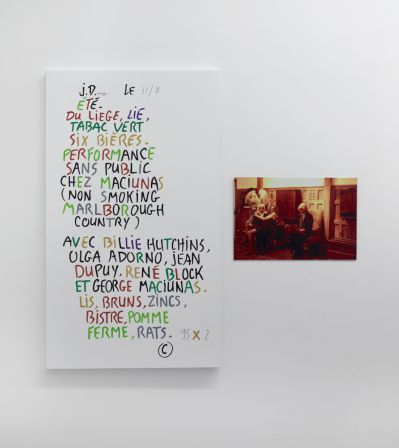 J.D. LE 31/8
ÉTÉ.
DU LIEGE, LIÉ,
TABAC VERT
SIX BIÈRES.
PERFORMANCE
SANS PUBLIC
CHEZ MACIUNAS
(NON SMOKING
MARLBOROUGH
COUNTRY)
AVEC BILLIE HUTCHINS,
OLGA ADORNO, JEAN
DUPUY, RENÉ BLOCK
ET GEORGE MACIUNAS.
LIS, BRUNS, ZINCS,
BISTRE, POMME
FERME, RATS. 95 X 2
©